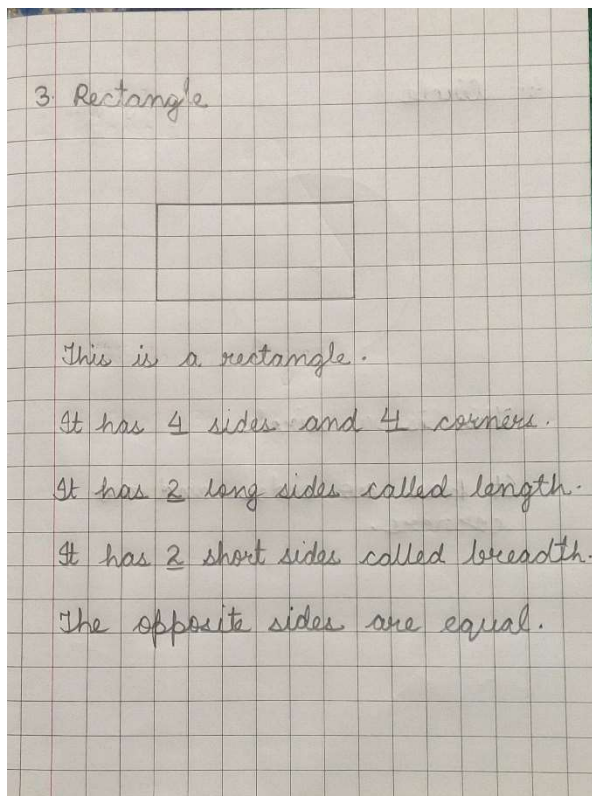 3. Rectangle
This is a rectangle.
It has 4 sides and 4 corners.
It has 2 long sides called length.
It has 2 short sides called breadth.
The opposite sides are equal.